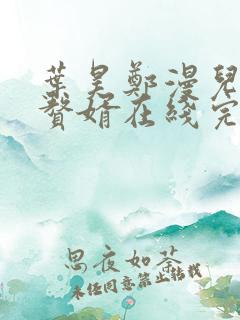 葉昊鄭漫兒
贅婿在綫完
思夜如茶
未經同意禁止轉載